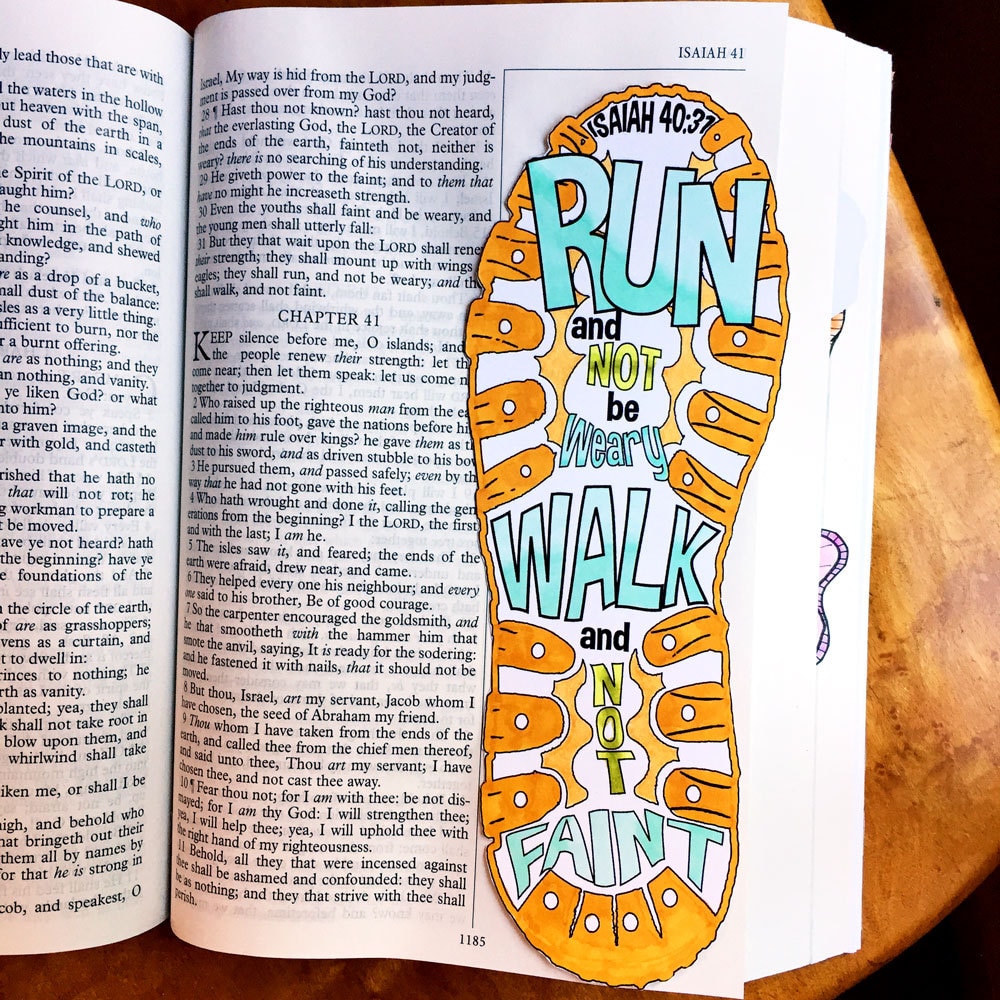 ly lead those that are with
the waters in the hollow
ut heaven with the span,
dust of the earth in a
he mountains in scales,
e Spirit of the LORD, or
aught him?
he counsel, and who
ght him in the path of
knowledge, and shewed
anding?
re as a drop of a bucket,
mall dust of the balance:
sles as a very little thing.
ufficient to burn, nor the
r a burnt offering.
are as nothing; and they
an nothing, and vanity.
ye liken God? or what
nto him?
a graven image, and the
r with gold, and casteth
rished that he hath no
that will not rot; he
g workman to prepare a
t be moved.
ave ye not heard? hath
the beginning? have ye
e foundations of the
n the circle of the earth,
of are as grasshoppers;
vens as a curtain, and
t to dwell in:
rinces to nothing; he
rth as vanity.
planted; yea, they shall
k shall not take root in
blow upon them, and
whirlwind shall take
iken me, or shall I be
nigh, and behold who
hat bringeth out their
them all by names by
for that he is strong in
cob, and speakest, O
ISAIAH 41
Israel, My way is hid from the LORD, and my judg-
ment is passed over from my God?
28 ¶ Hast thou not known? hast thou not heard,
that the everlasting God, the LORD, the Creator of
the ends of the earth, fainteth not, neither is
weary? there is no searching of his understanding.
29 He giveth power to the faint; and to them that
have no might he increaseth strength.
30 Even the youths shall faint and be weary, and
the young men shall utterly fall:
31 But they that wait upon the LORD shall rene
their strength; they shall mount up with wings
eagles; they shall run, and not be weary; and th
shall walk, and not faint.
CHAPTER 41
KEEP silence before me, O islands; and
the people renew their strength: let th
come near; then let them speak: let us come n
together to judgment.
2 Who raised up the righteous man from the ea
called him to his foot, gave the nations before hi
and made him rule over kings? he gave them as th
dust to his sword, and as driven stubble to his bow
3 He pursued them, and passed safely; even by th
way that he had not gone with his feet.
4 Who hath wrought and done it, calling the gen
erations from the beginning? I the LORD, the first
and with the last; I am he.
5 The isles saw it, and feared; the ends of the
earth were afraid, drew near, and came.
6 They helped every one his neighbour; and every
one said to his brother, Be of good courage.
7 So the carpenter encouraged the goldsmith, and
he that smootheth with the hammer him that
smote the anvil, saying, It is ready for the sodering:
and he fastened it with nails, that it should not be
moved.
8 But thou, Israel, art my servant, Jacob whom I
have chosen, the seed of Abraham my friend.
9 Thou whom I have taken from the ends of the
earth, and called thee from the chief men thereof,
and said unto thee, Thou art my servant; I have
chosen thee, and not cast thee away.
10 ¶ Fear thou not; for I am with thee: be not dis-
mayed; for I am thy God: I will strengthen thee;
yea, I will help thee; yea, I will uphold thee with
the right hand of my righteousness.
11 Behold, all they that were incensed against
thee shall be ashamed and confounded: they shall
be as nothing; and they that strive with thee shall
perish.
1185
ISAIAH 40:31
RUN
and
NOT
be
Weary
WALK
and
NOT
FAINT